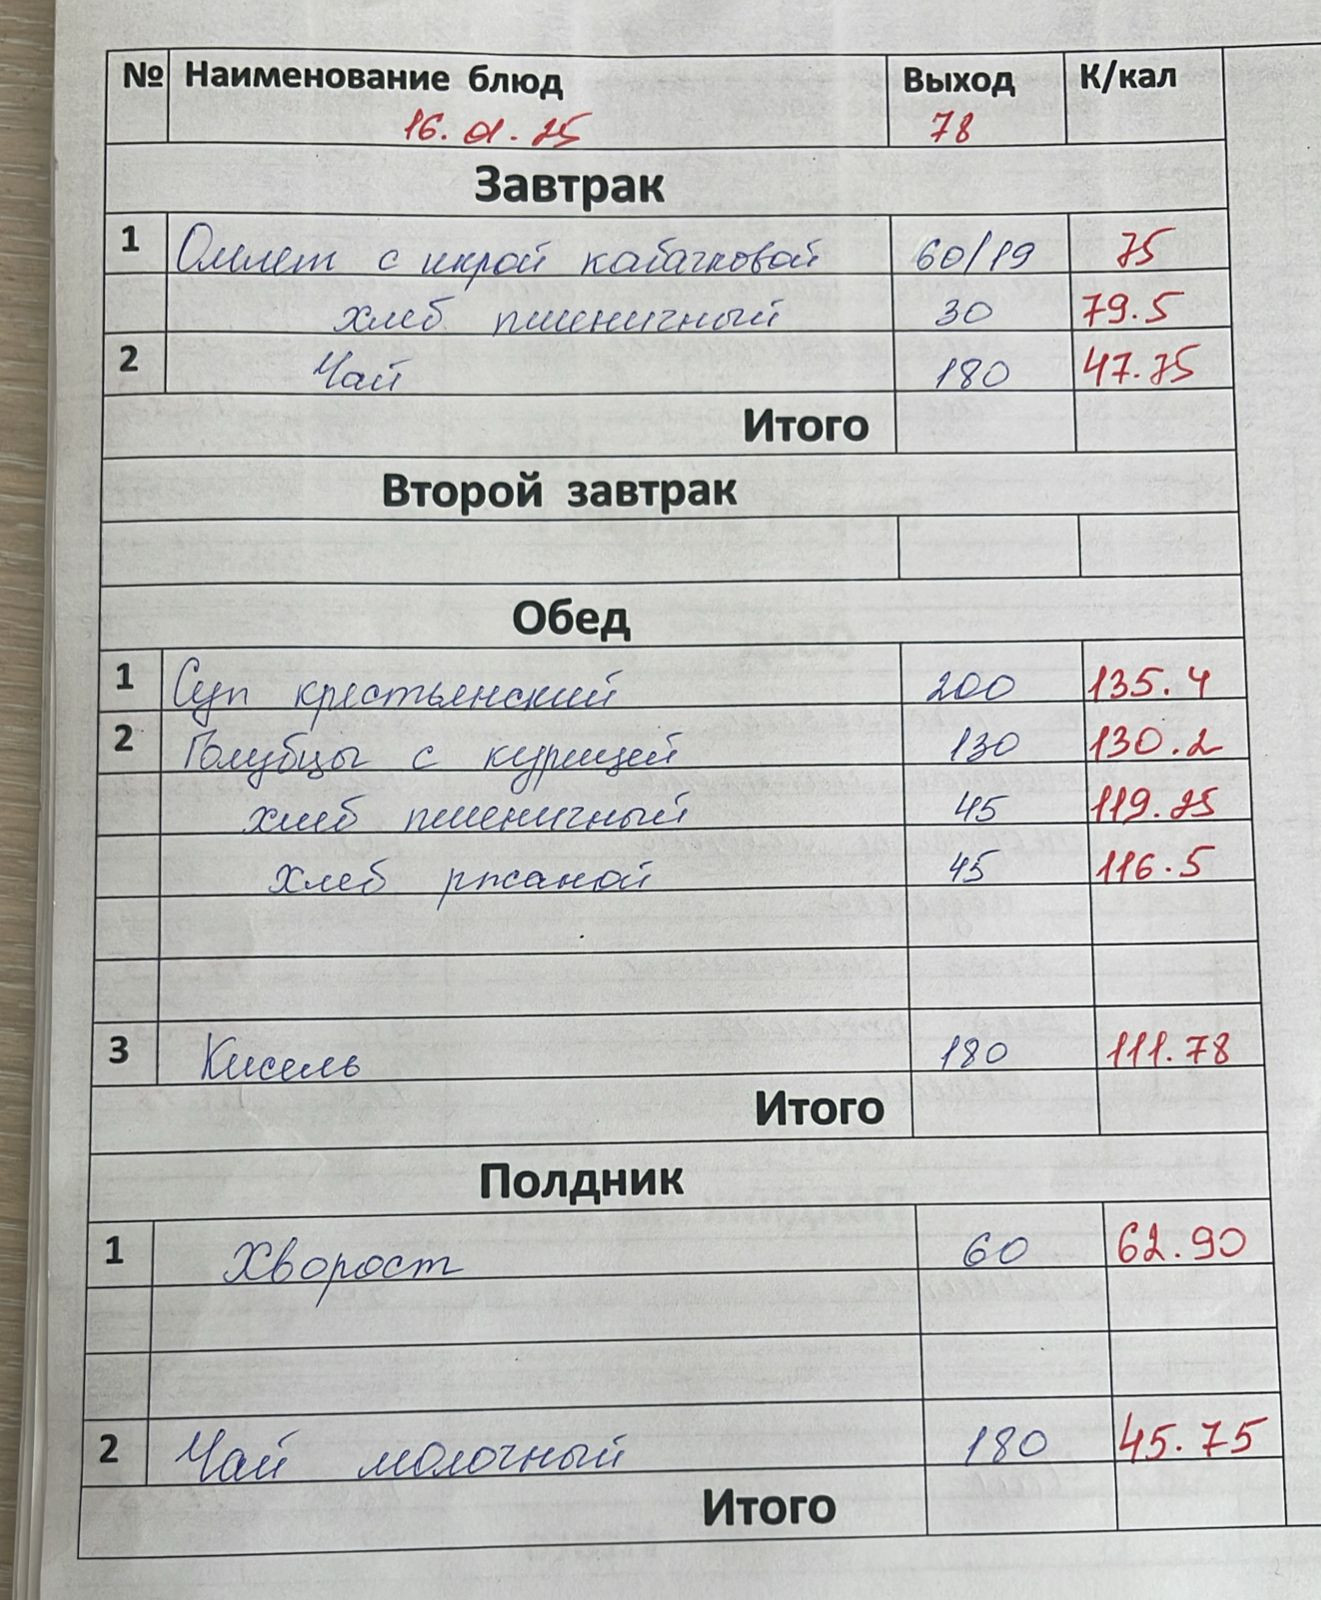 № Наименование блюд Выход К/кал
16.01.25 78
Завтрак
1 Омлет с икрой кабачковой 60/19 75
хлеб пшеничный 30 79.5
2 Чай 180 47.75
Итого
Второй завтрак
Обед
1 Суп крестьянский 200 135.4
2 Голубцы с курицей 130 130.2
хлеб пшеничный 45 119.25
хлеб ржаной 45 116.5
3 Кисель 180 111.78
Итого
Полдник
1 Хворост 60 62.90
2 Чай молочный 180 45.75
Итого